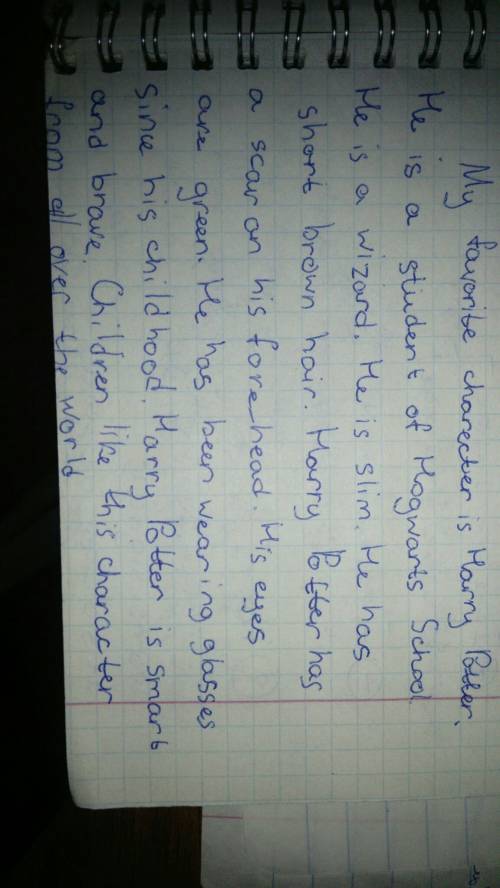 My favorite charecter is Harry Potter.
He is a student of Hogwarts School.
He is a wizard. He is slim. He has
short brown hair. Harry Potter has
a scar on his forehead. His eyes
are green. He has been wearing glasses
since his childhood. Harry Potter is smart
and brave. Children like this character
from all over the world